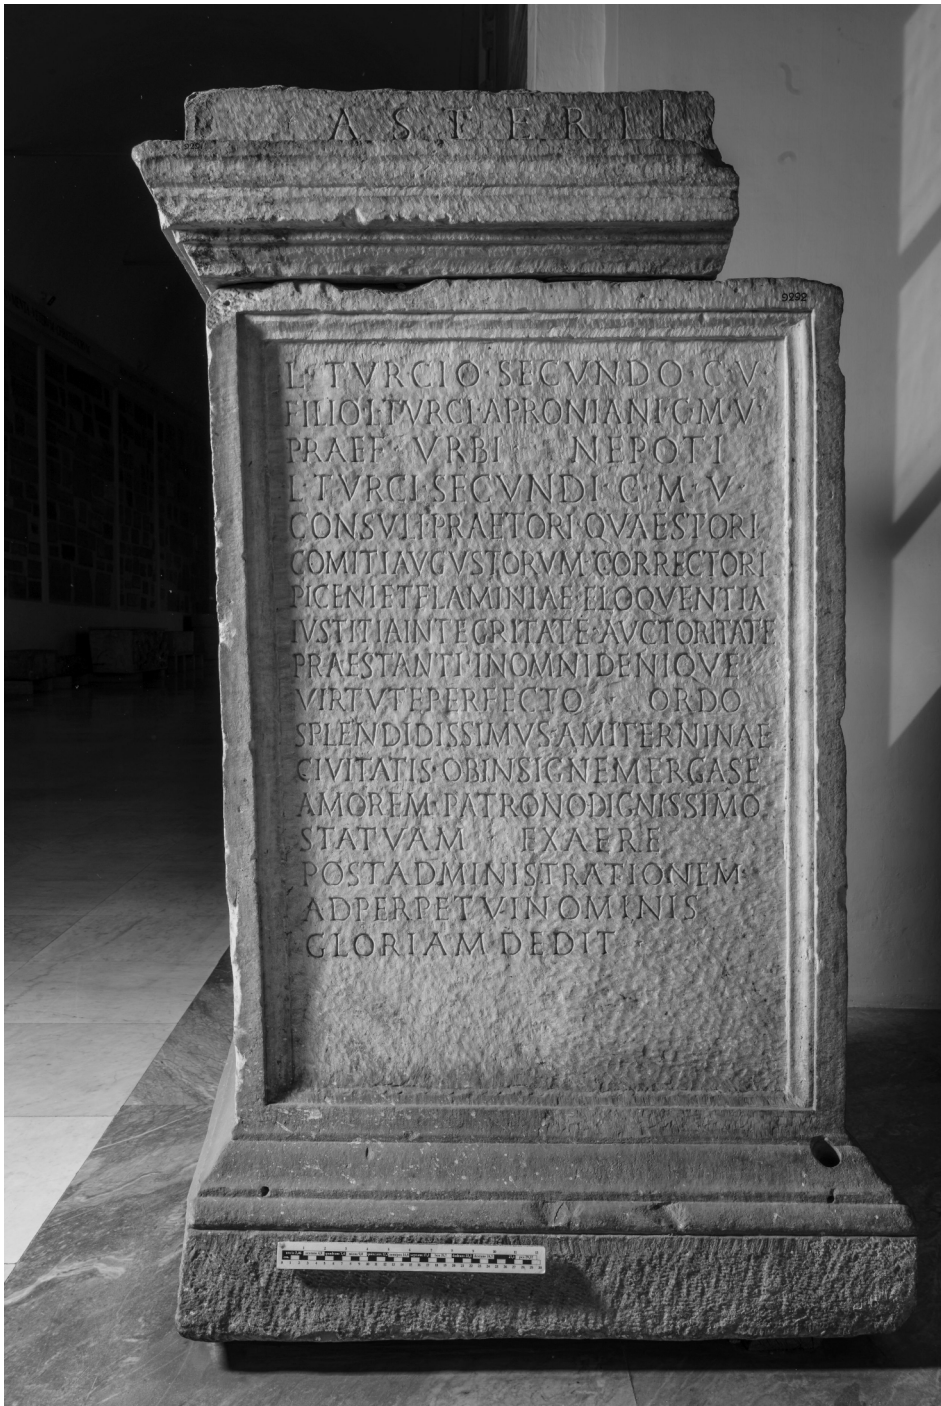 ASTERII
9292
L·TVRCIO·SECVNDO·C·V·
FILIO·L·TVRCI·APRONIANI·C·M·V·
PRAEF·VRBI NEPOTI
L·TVRCI·SECVNDI·C·M·V·
CONSVLI·PRAETORI·QVAESTORI
COMITI AVGVSTORVM·CORRECTORI
PICENI ET FLAMINIAE·ELOQVENTIA
IVSTITIA INTEGRITATE·AVCTORITATE
PRAESTANTI·IN OMNI DENIQVE
VIRTVTE PERFECTO ORDO
SPLENDIDISSIMVS·AMITERNINAE
CIVITATIS·OB INSIGNEM ERGA SE
AMOREM·PATRONO DIGNISSIMO
STATVAM EX AERE
POST ADMINISTRATIONEM
AD PERPETVI·NOMINIS
GLORIAM DEDIT